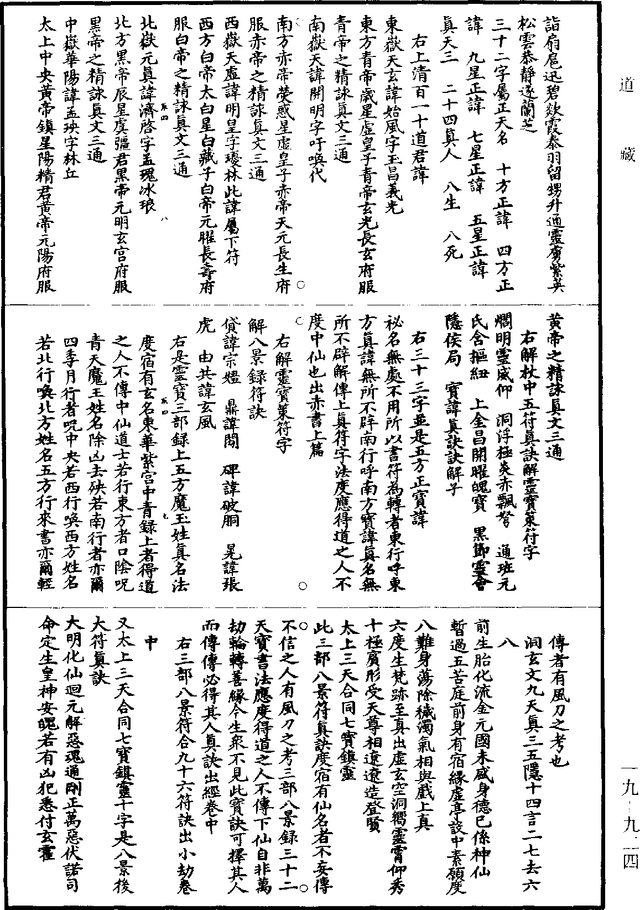 道藏
詣扇扈迅碧欻霞泰羽留甥升通靈膺紫英
松雲恭靜遂蘭芝
三十二字屬正天名　十方正諱　四方正
諱　九星正諱　七星正諱　五星正諱
真天三　二十四真人　八生　八死
右上清百一十道君諱
東嶽天玄諱始風字玉昌義光
東方青帝歲星虛皇子青帝玄光長玄府服
青帝之精詠真文三通
南嶽天諱開明字吁喚代
南方赤帝熒惑星虛皇子赤帝天元長生府
服赤帝之精詠真文三通
西嶽天虛諱明皇字瓊林此諱屬下符
西方白帝太白星白藏子白帝元曜長壽府
服白帝之精詠真文三通
北嶽元真諱濟啓字孟瑰冰琅
北方黑帝辰星虛疆君黑帝元明玄宮府服
黑帝之精詠真文三通
中嶽華陽諱孟玞字林丘
太上中央黃帝鎮星陽精君黃帝元陽府服
黃帝之精詠真文三通
右解杖中五符真訣解靈寶策符字
爓明靈威仰　洞浮極炎赤飄弩　通班元
氏含樞紐　上金昌開曜魄寶　黑節靈會
隱侯局　寶諱真訣訣解子
右三十三字並是五方正寶諱
祕名無處不用所以書符為轉者東行呼東
方真諱無所不辟南行呼南方寶諱真名無
所不辟解傳上真符字法度應得道之人不
度中仙也出赤書上篇
右解靈寶策符字
解八景錄符訣
貸諱宗嬑　鼎諱閻　碑諱破胴　晃諱張
虎　由共諱玄風
右是靈寶三部錄上五方魔王姓真名法
度宿有玄名東華紫宮中青錄上者得道
之人不傳中仙道士若行東方者口陰呪
青天魔王姓名除凶去殃若南行者亦爾
四季月行者呪中央若西行喚西方姓名
若北行喚北方姓名五方行來書亦爾輕
傳者有風刀之考也
洞玄文九天真三五隱十四言二七去六
八
前生胎化流金元國未感身德已係神仙
暫過五苦庭前身有宿緣虛亭設中素願度
八難身蕩除穢濁氣相與戲上真
六度生梵跡至真出虛玄空洞鬱靈霄仰秀
十極廣形受天尊相遠遼造登賢
太上三天合同七寶鎮靈
此三部八景符真訣度宿有仙名者不妄傳
不信之人有風刀之考三部八景錄三十二
天寶書法應度得道之人不傳下仙自非萬
劫輪轉善緣今生眾不見此寶訣可擇其人
而傳傳必得其人真訣出經卷中
右三部八景符合九十六符訣出小劫卷
中
又太上三天合同七寶鎮靈十字是八景後
大符真訣
大明化仙迴元解惡魂通剛正萬惡伏諾司
命定生皇神安魄若有凶犯悉付玄霍
一九・九二四